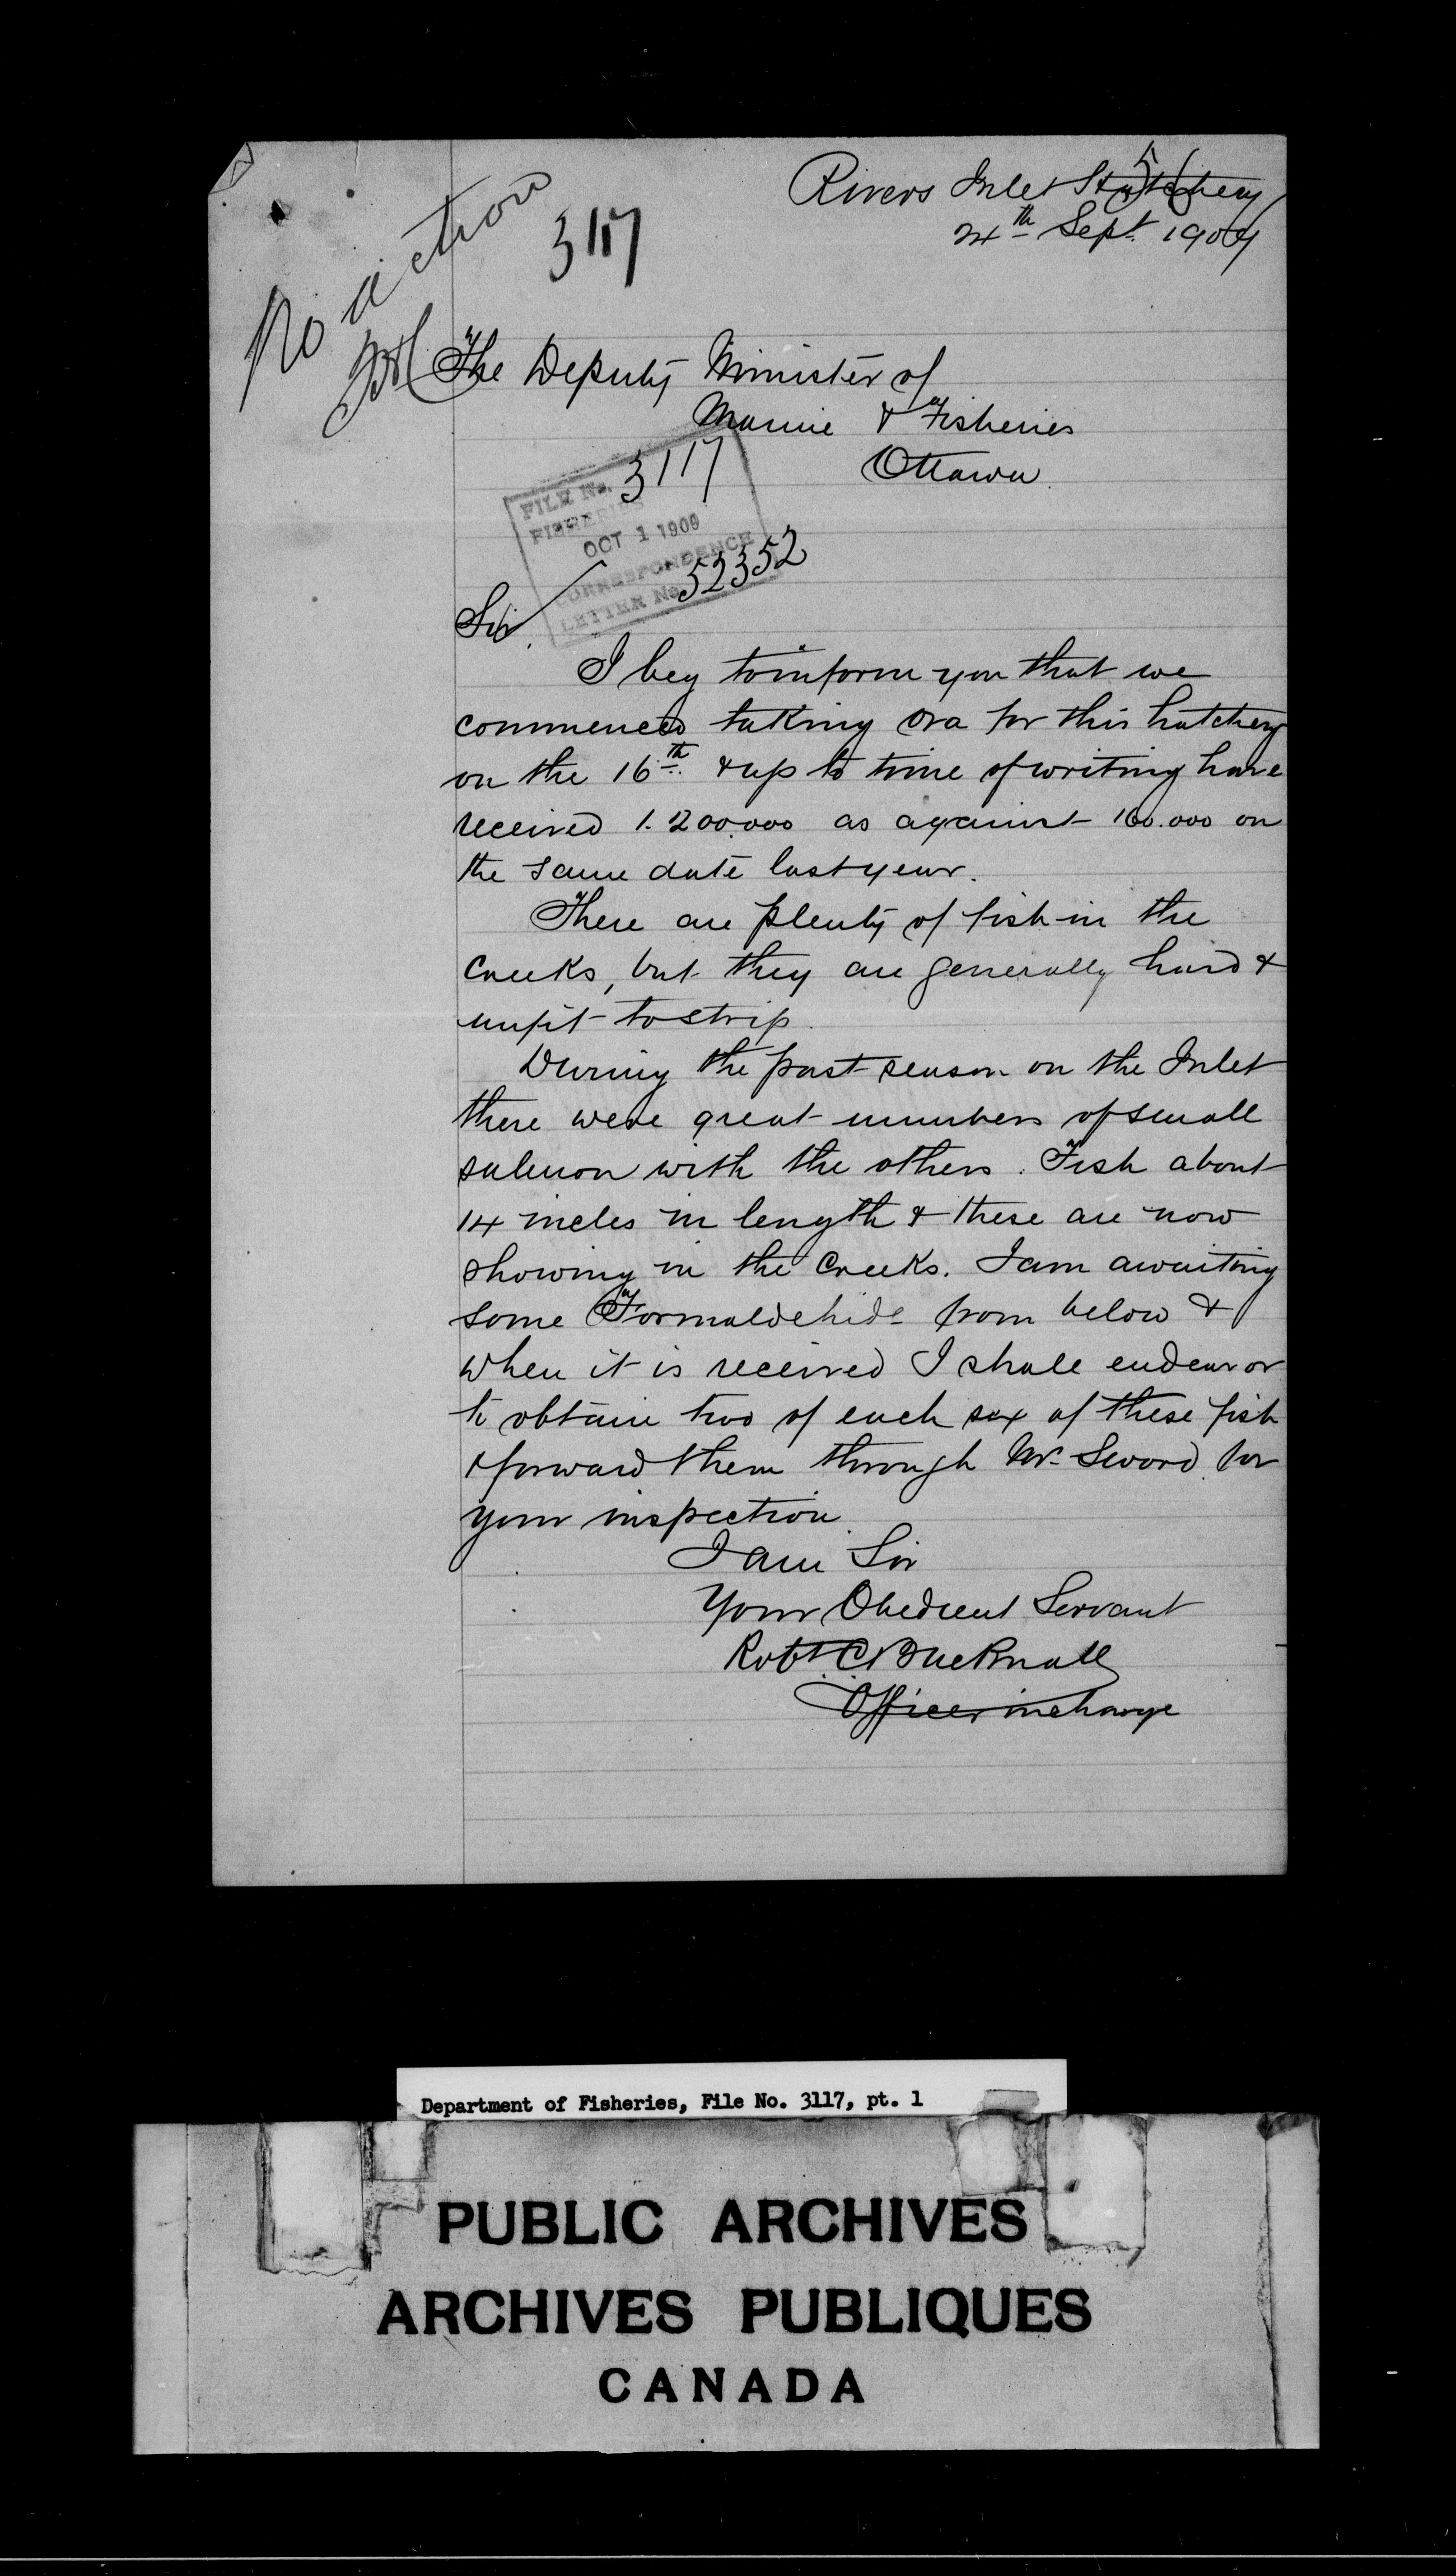 Rivers Inlet Hatchery
56
24th Sept. 1909
No action
3117
The Deputy Minister of
Marine & Fisheries
Ottawa.
FILE No. 3117
FISHERIES
OCT 1 1909
CORRESPONDENCE
LETTER No. 52352
Sir.
I beg to inform you that we
commenced taking ova for this hatchery
on the 16th. & up to time of writing have
received 1.200.000 as against 160.000 on
the same date last year.
There are plenty of fish in the
Creeks, but they are generally hard &
unfit to strip.
During the past season on the Inlet
there were great numbers of small
salmon with the others. Fish about
14 inches in length & these are now
showing in the Creeks. I am awaiting
some Formaldehide from below &
when it is received I shall endeavor
to obtain two of each sex of these fish
& forward them through Mr. Sword for
your inspection.
I am Sir
Your Obedient Servant
Robt. C Bucknall
Officer in charge
Department of Fisheries, File No. 3117, pt. 1
PUBLIC ARCHIVES
ARCHIVES PUBLIQUES
CANADA